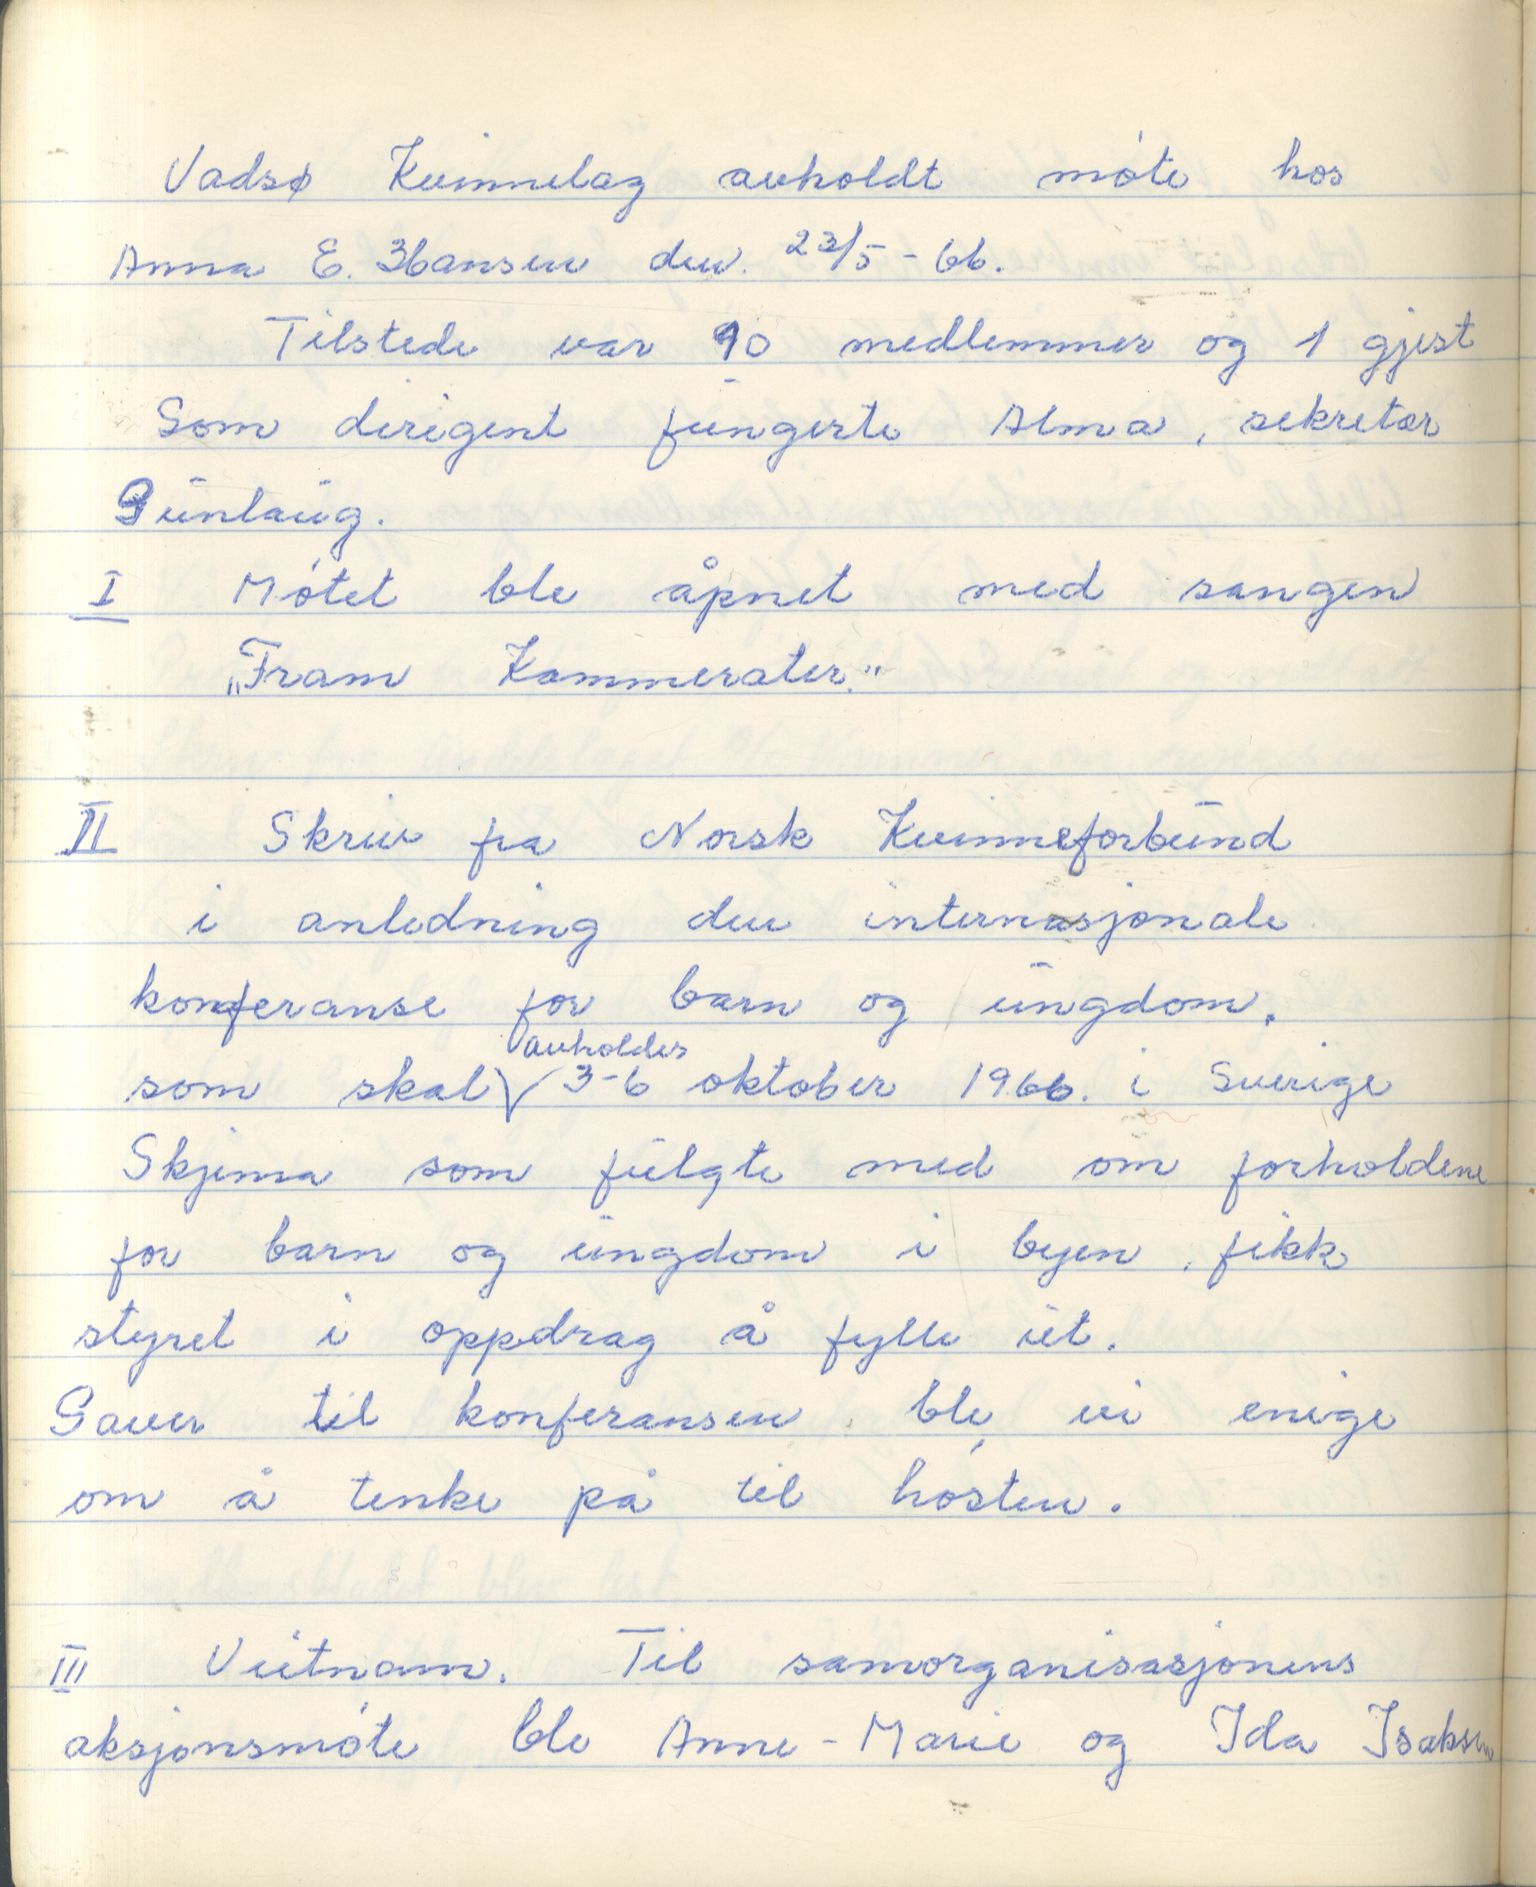 Vadsø Kvinnelag avholdt møte hos
Anna E. Hansen den. 23/5 - 66.
Tilstede var 10 medlemmer og 1 gjest
Som dirigent fungerte Alma, sekretær
Gunlaug.
I Møtet ble åpnet med sangen
„Fram Kammerater."
II Skriv fra Norsk Kvinneforbund
i anledning den internasjonale
konferanse for barn og ungdom,
avholdes
som skal 3-6 oktober 1966. i Sverige
Skjema som fulgte med om forholdene
for barn og ungdom i byen, fikk
styret i oppdrag å fylle ut.
Gaver til konferansen ble vi enige
om å tenke på til høsten.
III Vietnam. Til samorganisasjonens
aksjonsmøte ble Anne-Marie og Ida Isaksen